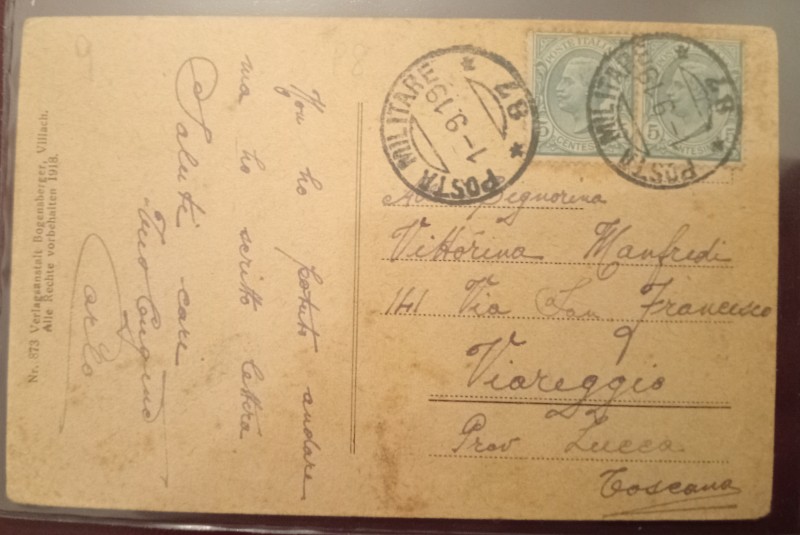 Non ho potuto andare
ma ho scritto lettera
Saluti care
Tuo Cugino
Carlo
Nr. 873 Verlagsanstalt Bogensberger, Villach.
Alle Rechte vorbehalten 1918.
POSTE ITALIANE
CENTESIMI 5
POSTE
5 CENTESIMI
POSTA MILITARE
1-9.19
* 87 *
POSTA MILITARE
1-9.19
* 87
Alla Signorina
Vittorina Manfredi
141 Via San Francesco
Viareggio
Prov Lucca
Toscana